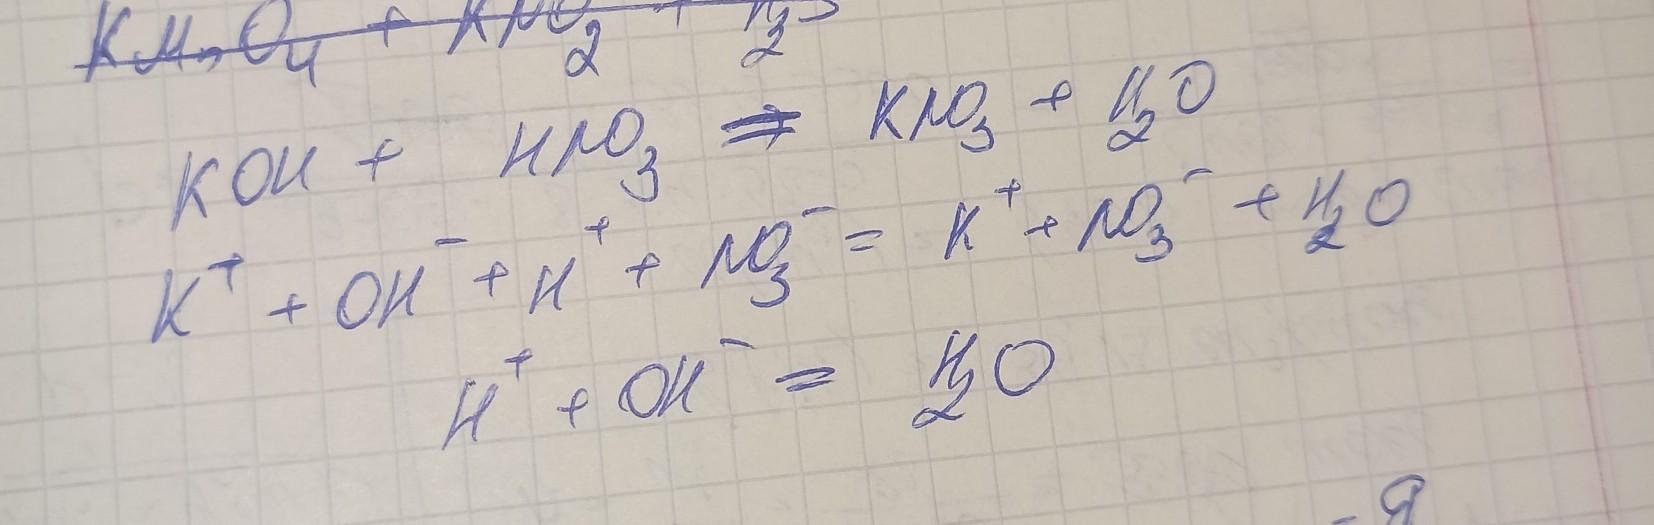 KMnO₄ + KNO₂ +
KOH + HNO₃ = KNO₃ + H₂O
K⁺ + OH⁻ + H⁺ + NO₃⁻ = K⁺ + NO₃⁻ + H₂O
H⁺ + OH⁻ = H₂O
- Я